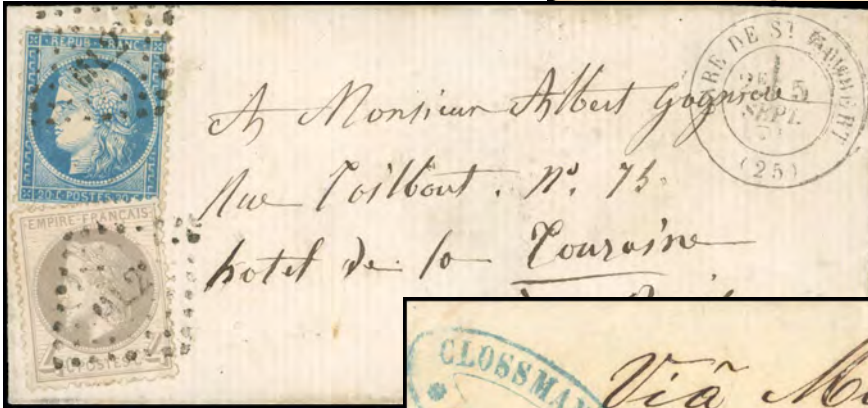 REPUB FRANC
20 C POSTES 20 C
EMPIRE FRANCAIS
POSTES
GARE DE ST RAMBERT
5
SEPT.
(25)
A Monsieur Albert
Rue Taitbout. N° 75.
hotel de la Touraine
CLOSSMAN
Via